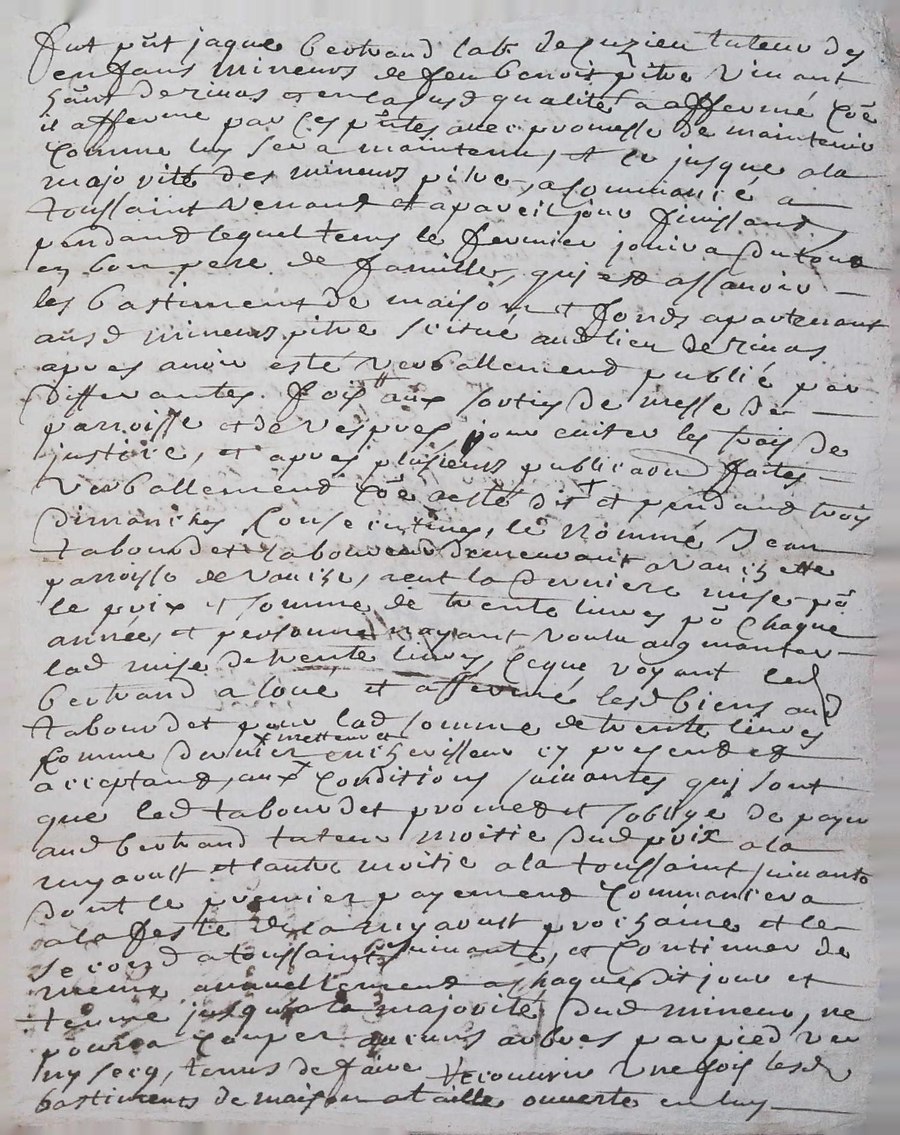 fut pñt jaque bertrand lab de tuteur des
enfans mineurs de feu benoist pitre vivant
hañt de rinas et en lad qualité a affermé coẽ
il afferme par ces pñtes avec promesse de maintenir
comme luy sera maintenu, et ce jusque a la
majorité des mineurs pitre, a commancé a
toussaint venant et a pareil jour finissant,
pendand lequel tems le fermier jouira du tout
en bon pere de famille, qui est assavoir
les bastiment de maison et fonds apartenant
ausd mineurs pitre scitué audlieu de rinas
apres avoir esté verballemend publié par
differantes fois aux sorties de messe de
parroisse et de vespres pour eviter les frais de
justice, et apres plusieurs publicaõnd faites
verballemend coẽ a esté dit et pendand trois
dimanches consecutives, le nommé Jean
tabourdet laboureur demeurant a
parroisse de , aent la derniere mise põ
le prix et somme de trente livres põ chaque
année, et personne nayant voulu augmanter
lad mise de trente livres, ceque voyant led
bertrand a loué et affermé lesd biens aud
tabourdet pour lad somme de trente livres
comme dernier metteur et encherisseur cy presend et
acceptand, aux conditions suivantes qui sont
que led tabourdet promed et soblige de payer
aud bertrand tuteur moitié dud prix a la
myaoust et lautre moitié a la toussaint suivante
dont le premier payemend commancera
a la feste de la myaoust prochaine et le
second a toussaint suivante, et continuer de
meme annuellemend a chaque dit jour et
terme jusqua la majorité dud mineur, ne
pourra couper aucuns arbres par pied ver
ny secq, tenus de faire recouvrir une fois lesd
bastiments de maison a taille ouverte en luy